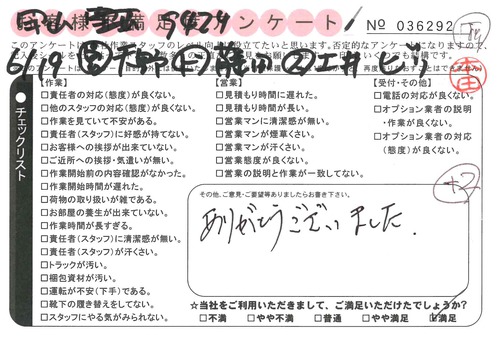 お客様満足度アンケート
№ 036292
6/19
チェックリスト
【作業】
□責任者の対応(態度)が良くない。
□他のスタッフの対応(態度)が良くない。
□作業を見ていて不安がある。
□責任者(スタッフ)に好感が持てない。
□お客様への挨拶が出来ていない。
□ご近所への挨拶・気遣いが無い。
□作業開始前の内容確認がなかった。
□作業開始時間が遅れた。
□荷物の取り扱いが雑である。
□お部屋の養生が出来ていない。
□作業時間が長すぎる。
□責任者(スタッフ)に清潔感が無い。
□責任者(スタッフ)が汗くさい。
□トラックが汚い。
□梱包資材が汚い。
□運転が不安(下手)である。
□靴下の履き替えをしてない。
□スタッフにやる気がみられない。
【営業】
□見積もり時間に遅れた。
□見積もり時間が長い。
□営業マンに清潔感が無い。
□営業マンが煙草くさい。
□営業マンが汗くさい。
□営業態度が良くない。
□営業の説明と作業が一致してない。
【受付・その他】
□電話の対応が良くない。
□オプション業者の説明・作業が良くない。
□オプション業者の対応(態度)が良くない。
その他、ご意見・ご要望等ありましたらお書き下さい。
ありがとうございました。
☆当社をご利用いただきまして、ご満足いただけたでしょうか?
□不満 □やや不満 □普通 □やや満足 ☑満足